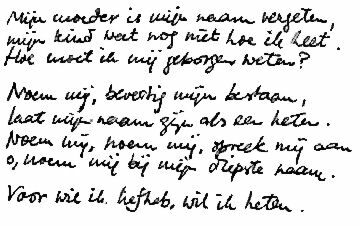 Mijn moeder is mijn naam vergeten,
mijn kind weet nog niet hoe ik heet.
Hoe moet ik mij geborgen weten?
Noem mij, bevestig mijn bestaan,
laat mijn naam zijn als een keten.
Noem mij, noem mij, spreek mij aan
o, noem mij bij mijn diepste naam.
Voor wie ik liefheb, wil ik heten.